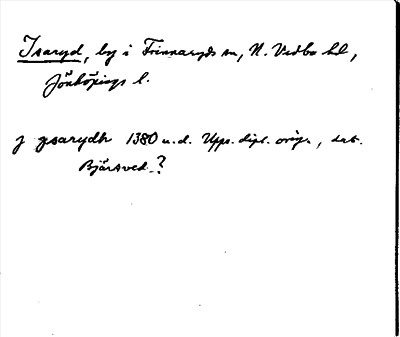 Isaryd, by i Frinnaryds sn, N. Vedbo hd,
Jönköpings l.
j ysarydh 1380 u.d. Upps. dipl. orig., dat.
Bjärsved?